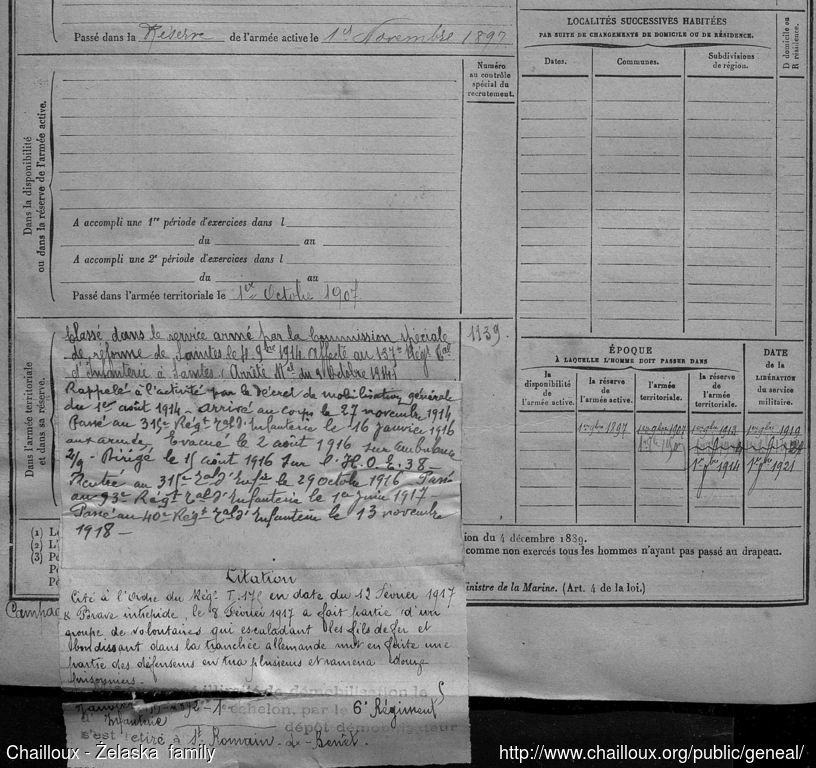 Passé dans la Réserve de l'armée active le 1er Novembre 1897
Numéro
au contrôle
spécial du
recrutement.
Dans la disponibilité
ou dans la réserve de l'armée active.
A accompli une 1re période d'exercices dans l
du au
A accompli une 2e période d'exercices dans l
du au
Passé dans l'armée territoriale le 1er Octobre 1907
LOCALITÉS SUCCESSIVES HABITÉES
PAR SUITE DE CHANGEMENTS DE DOMICILE OU DE RÉSIDENCE.
Dates.
Communes.
Subdivisions
de région.
D domicile ou
R résidence.
Dans l'armée territoriale
et dans sa réserve.
Classé dans le service armé par la Commission spéciale
de réforme de Saintes le 4 9bre 1914 Affecté au 137e Régt Tal
d'Infanterie à Saintes
1139.
Rappelé à l'activité par le Décret de mobilisation générale
du 1er août 1914 - arrivé au corps le 27 novembre 1914
Passé au 315e Régt Tal d'Infanterie le 16 janvier 1916
aux armées Évacué le 2 août 1916 sur ambulance
2/9 - Dirigé le 15 août 1916 sur l'H.O.E. 38 -
Rentré au 315e Tal d'Infie le 29 octobre 1916 Passé
au 93e Régt Tal d'Infanterie le 1er juin 1917
Passé au 40e Régt Tal d'Infanterie le 13 novembre
1918 -
ÉPOQUE
À LAQUELLE L'HOMME DOIT PASSER DANS
la
disponibilité
de l'armée active.
la réserve
de
l'armée active.
l'armée
territoriale.
la réserve
de l'armée
territoriale.
DATE
de la
LIBÉRATION
du service
militaire.
1er 9bre 1897
1er 9bre 1907
1er 9bre 1913
1er 9bre 1919
1er 9bre 1914
1er 9bre 1921
(1)
(2) L'
(3)
ion du 4 décembre 1889.
comme non exercés tous les hommes n'ayant pas passé au drapeau.
inistre de la Marine. (Art. 4 de la loi.)
Campag
Citation
Cité à l'Ordre du Régt en date du 12 Février 1917
" Brave intrépide, le 8 Février 1917 a fait partie d'un
groupe de volontaires qui escaladant les fils de fer et
bondissant dans la tranchée allemande mit en fuite une
partie des défenseurs en tua plusieurs et ramena douze
prisonniers.
de démobilisation
échelon, par le 6e Régiment
d'Infanterie dépôt démobilisateur
s'est retiré à St Romain de Benet.
Chailloux - Żelaska family
http://www.chailloux.org/public/geneal/